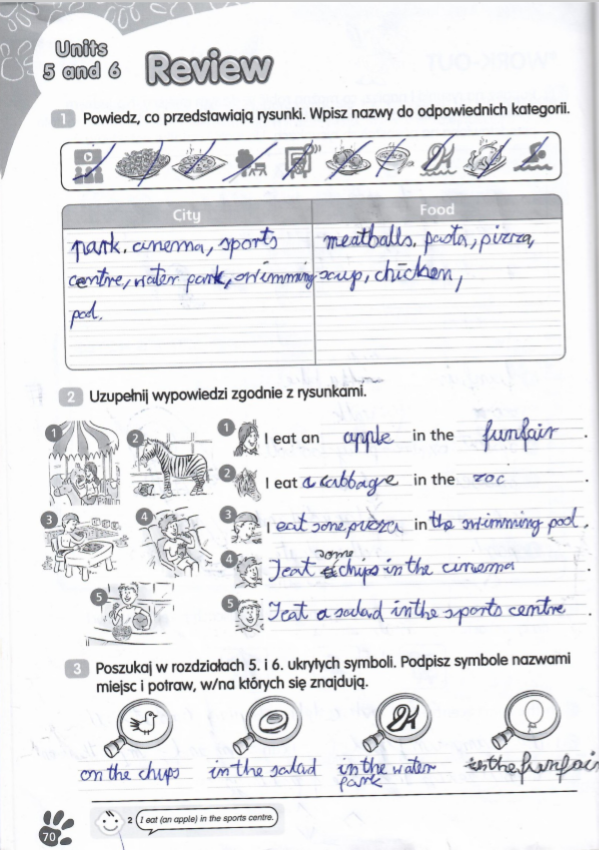 Units
5 and 6
Review
1 Powiedz, co przedstawiają rysunki. Wpisz nazwy do odpowiednich kategorii.
City Food
park, cinema, sports meatballs, pasta, pizza,
centre, water park, swimming soup, chicken,
pool.
2 Uzupełnij wypowiedzi zgodnie z rysunkami.
1 I eat an apple in the funfair .
2 I eat a cabbage in the zoo .
3 I eat some pizza in the swimming pool .
4 I eat some chips in the cinema .
5 I eat a salad in the sports centre .
3 Poszukaj w rozdziałach 5. i 6. ukrytych symboli. Podpisz symbole nazwami
miejsc i potraw, w/na których się znajdują.
on the chips in the salad in the water in the funfair
park
2 I eat (an apple) in the sports centre.
70